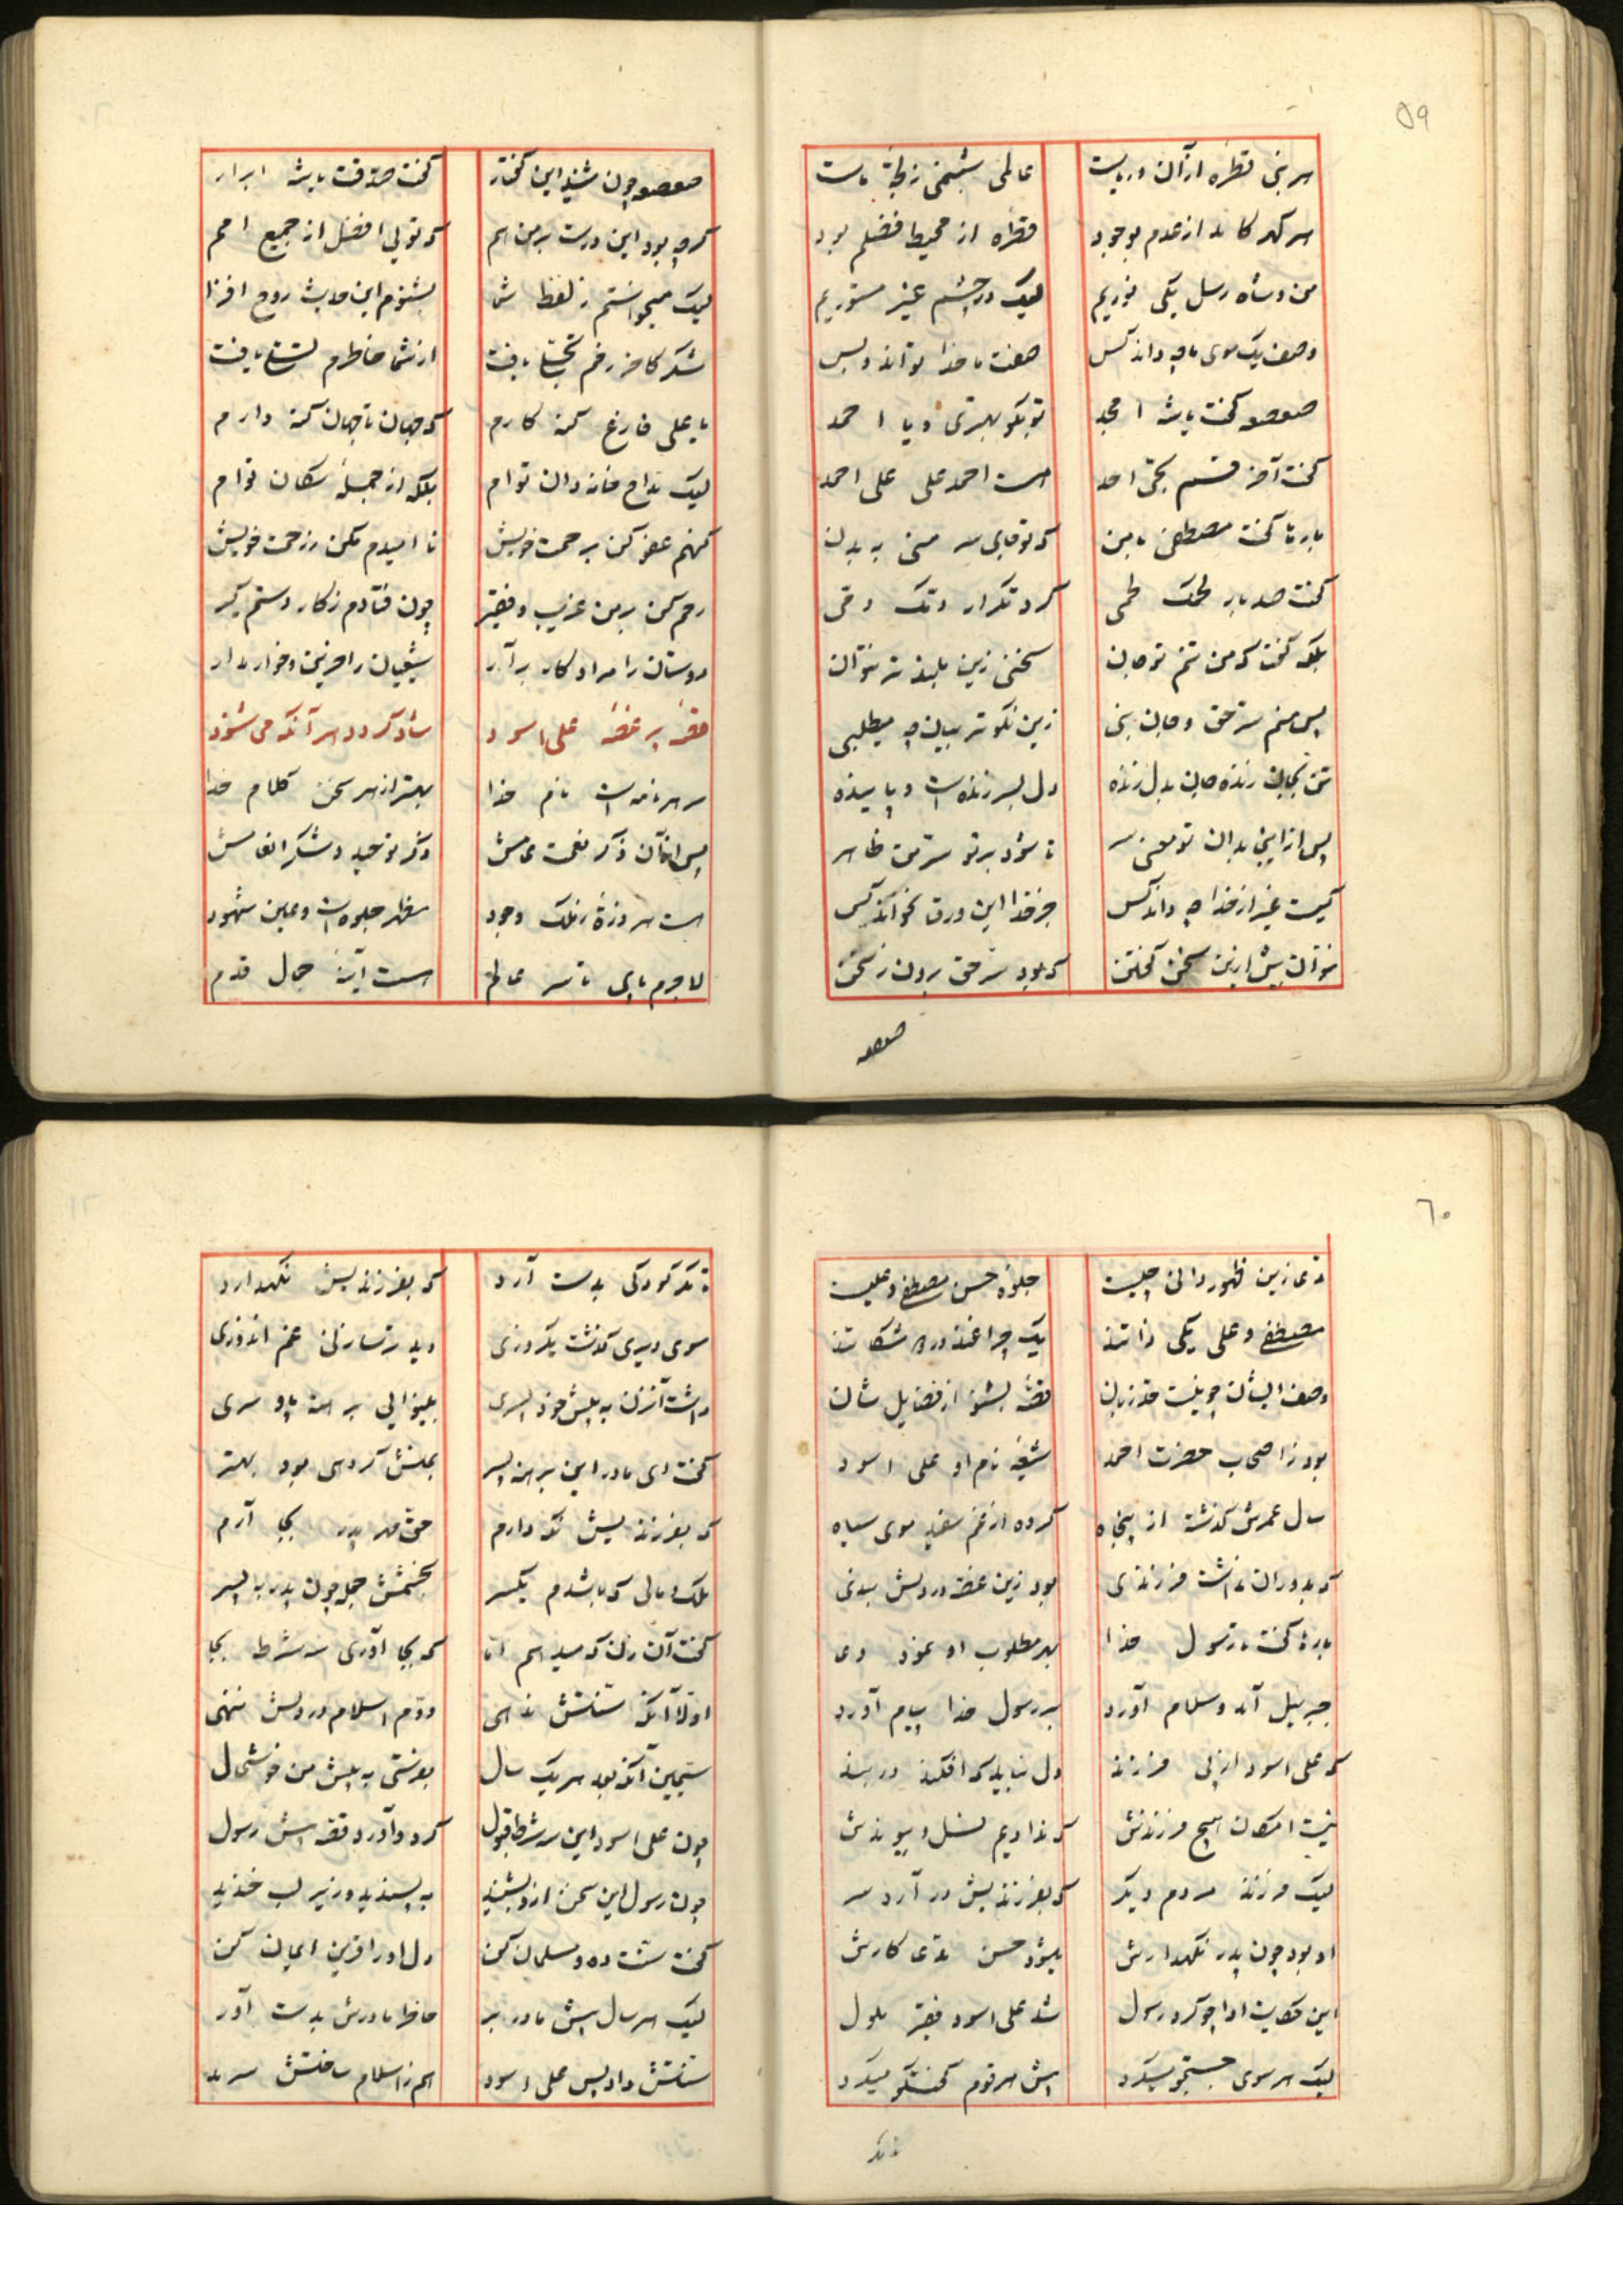 ۵۹
هر نبی قطره از آن دریاست عالمی شبنمی ز لجهٔ ماست
هر گهر کامد از عدم بوجود قطره از محیط فضلم بود
من و شاه رسل یکی نوریم لیک در چشم غیر مستوریم
وصف یک موی ما چه داند کس صفت ما خدا تواند و بس
صعصعه گفت یا شه امجد تو بگو بهتری و یا احمد
گفت آخر قسم بحق احد هست احمد علی علی احمد
بارها گفت مصطفی با من که تو جای سر منی به بدن
گفت صد بار لحمک لحمی کرد تکرار دمک دمی
بلکه گفت که من تنم تو جان سخنی زین بلندتر نتوان
پس منم سر حق و جان نبی زین نکوتر بیان چه میطلبی
تن بجان زنده جان بدل زنده دل بسر زنده است و پاینده
پس از این بدان تو معنی سر تا شود بر تو سر من ظاهر
کیست غیر از خدا چه داند کس جز خدا این ورق نخواند کس
نتوان بیش ازین سخن گفتن که بود سر حق برون ز سخن
صعصعه
صعصعه چون شنید این گفتار گفت صدقت یا شه ابرار
گرچه بود این درست بر من هم که تویی افضل از جمیع امم
لیک میخواستم ز لفظ شما بشنوم این حدیث روح افزا
شکر کاخر رخم تجلی یافت از شما خاطرم تسلی یافت
یا علی فارغ گنه کارم که جهان تا جهان گنه دارم
لیک مداح خاندان توام بلکه از جملهٔ سگان توام
گنهم عفو کن به رحمت خویش نا امیدم مکن ز رحمت خویش
رحم کن بر من غریب و فقیر چون فتادم ز کار دستم گیر
دوستان را مراد کار برآر شیعیان را حزین و خوار مدار
قصهٔ پر غصهٔ علی اسود شاد گردد هر آنکه می شنود
سر هر نامه است نام خدا بهتر از هر سخن کلام خدا
پس از آن ذکر نعمت عامش ذکر توحید و شکر انعامش
هست هر ذرهٔ ز ملک وجود مظهر جلوه است و عین شهود
لاجرم پای تا سر عالم هست آینهٔ جمال قدم
۶۰
مدعا زین ظهور دانی چیست جلوهٔ حسن مصطفی و علیست
مصطفی و علی یکی ذاتند یک چراغند و در دو مشکاتند
وصف ایشان چو نیست حد زبان قصه بشنو از فضایل شان
بود ز اصحاب حضرت احمد شیعهٔ نام او علی اسود
سال عمرش گذشته از پنجاه کرده از غم سفید موی سیاه
که بدوران نداشت فرزندی بود زین غصه در دلش بندی
بارها گفت با رسول خدا بهر مطلوب او نمود دعا
جبرییل آمد و سلام آورد بر رسول خدا پیام آورد
که علی اسود از پی فرزند دل نباید که افکند در بند
نیست امکان هیچ فرزندش که ندادیم نسل و پیوندش
لیک فرزند مردم دیگر که بفرزندیش در آرد سر
او بود چون پدر نگهدارش بشود حسن مدعا کارش
این حکایت ادا چو کرد رسول شد علی اسود فقیر ملول
لیک هر سوی جستجو میکرد پیش هر قوم گفتگو میکرد
تا مگر
تا مگر کودکی بدست آرد که بفرزندیش نگهدارد
سوی دیری گذشت یک روزی دید ترسا زنی غم اندوزی
داشت آن زن به پیش خود پسری بینوایی برهنه پا و سری
گفت ای مادر این برهنه پسر بمنش گر دهی بود بهتر
که بفرزندیش نگه دارم حق مهر پدر بجا آرم
ملک و مالی که باشدم یکسر بخشمش جمله چون پدر به پسر
گفت آن زن که میدهم اما که بجا آوری سه شرط بجا
اولا آنکه سنتش ندهی دوم اسلام در دلش ننهی
سیمین آنکه بعد هر یک سال بفرستی به پیش من خوشحال
چون علی اسود این سه شرط قبول کرد و آورد قصه پیش رسول
چون رسول این سخن ازو بشنید به پسندید و زیر لب خندید
گفت سنت ده و مسلمان کن دل او را قرین ایمان کن
لیک هر سال پیش مادر بر خاطر مادرش بدست آور
سنتش داد پس علی اسود هم ز اسلام ساختش سرمد